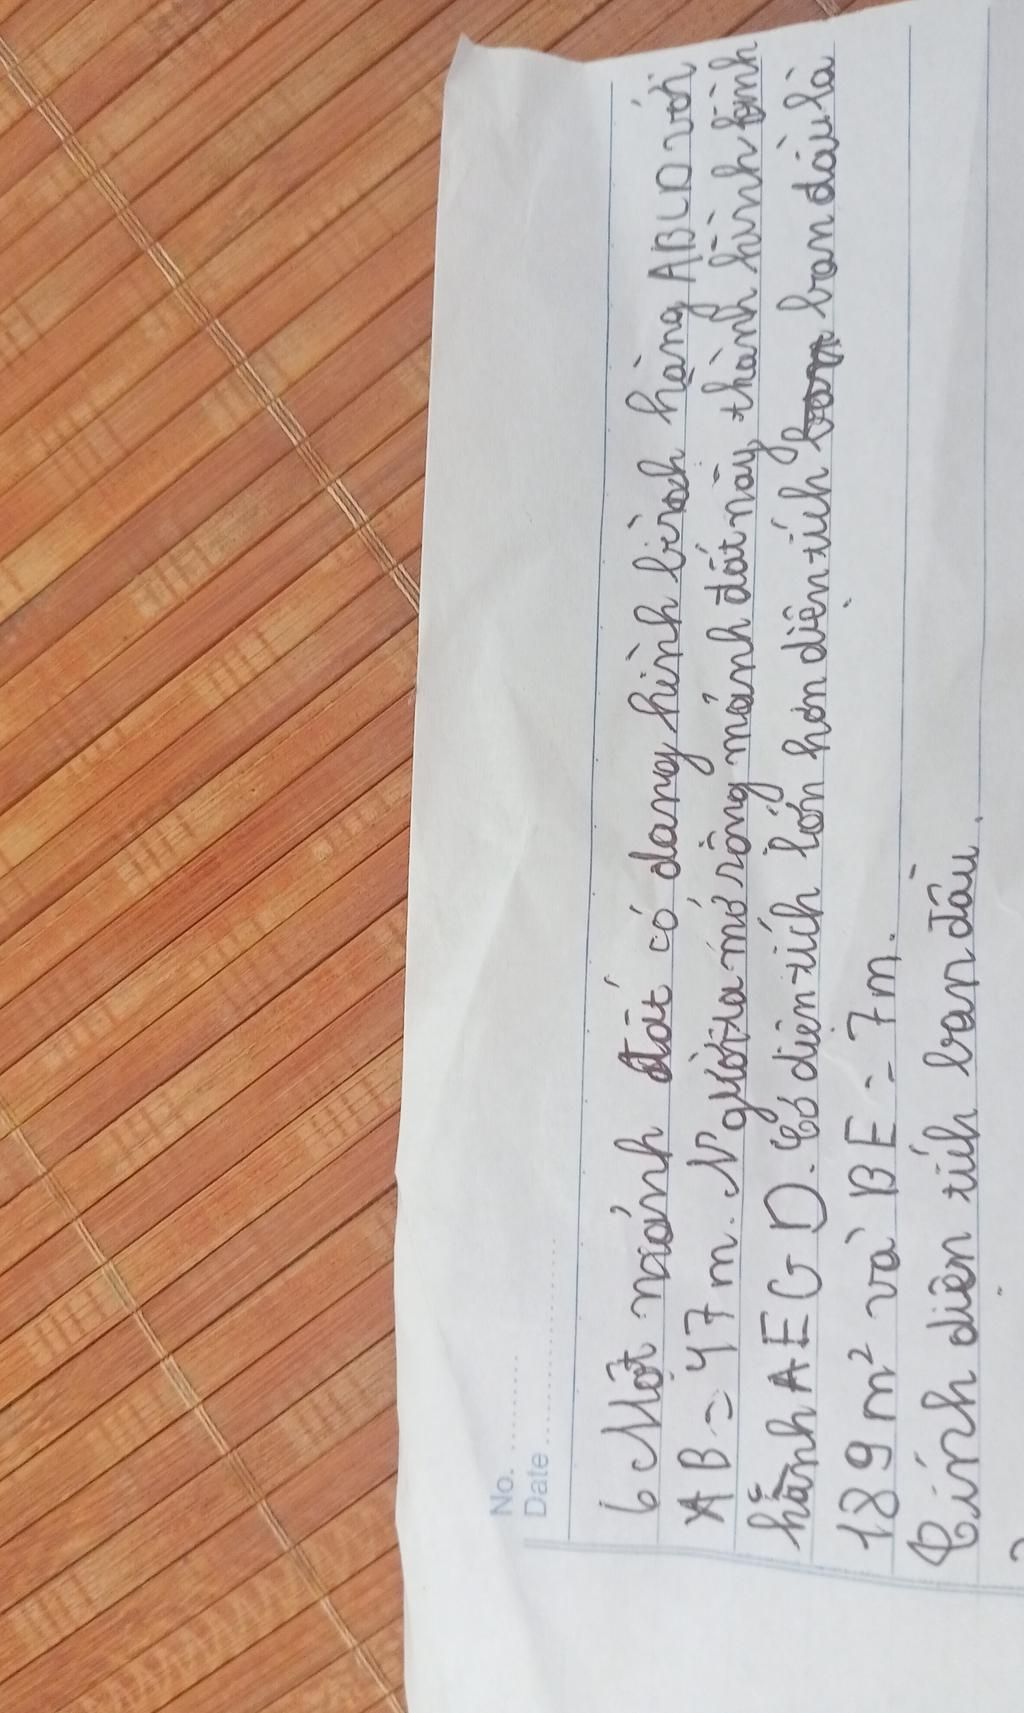 No. ............
Date ......................
6 Một mảnh đất có dạng hình bình hàng ABCD với
AB = 47 m. Người ta mở rộng mảnh đất này thành hình bình
hành AEGD. Có diện tích lớn hơn diện tích ban đầu là
189 m² và BE = 7m.
Tính diện tích ban đầu.